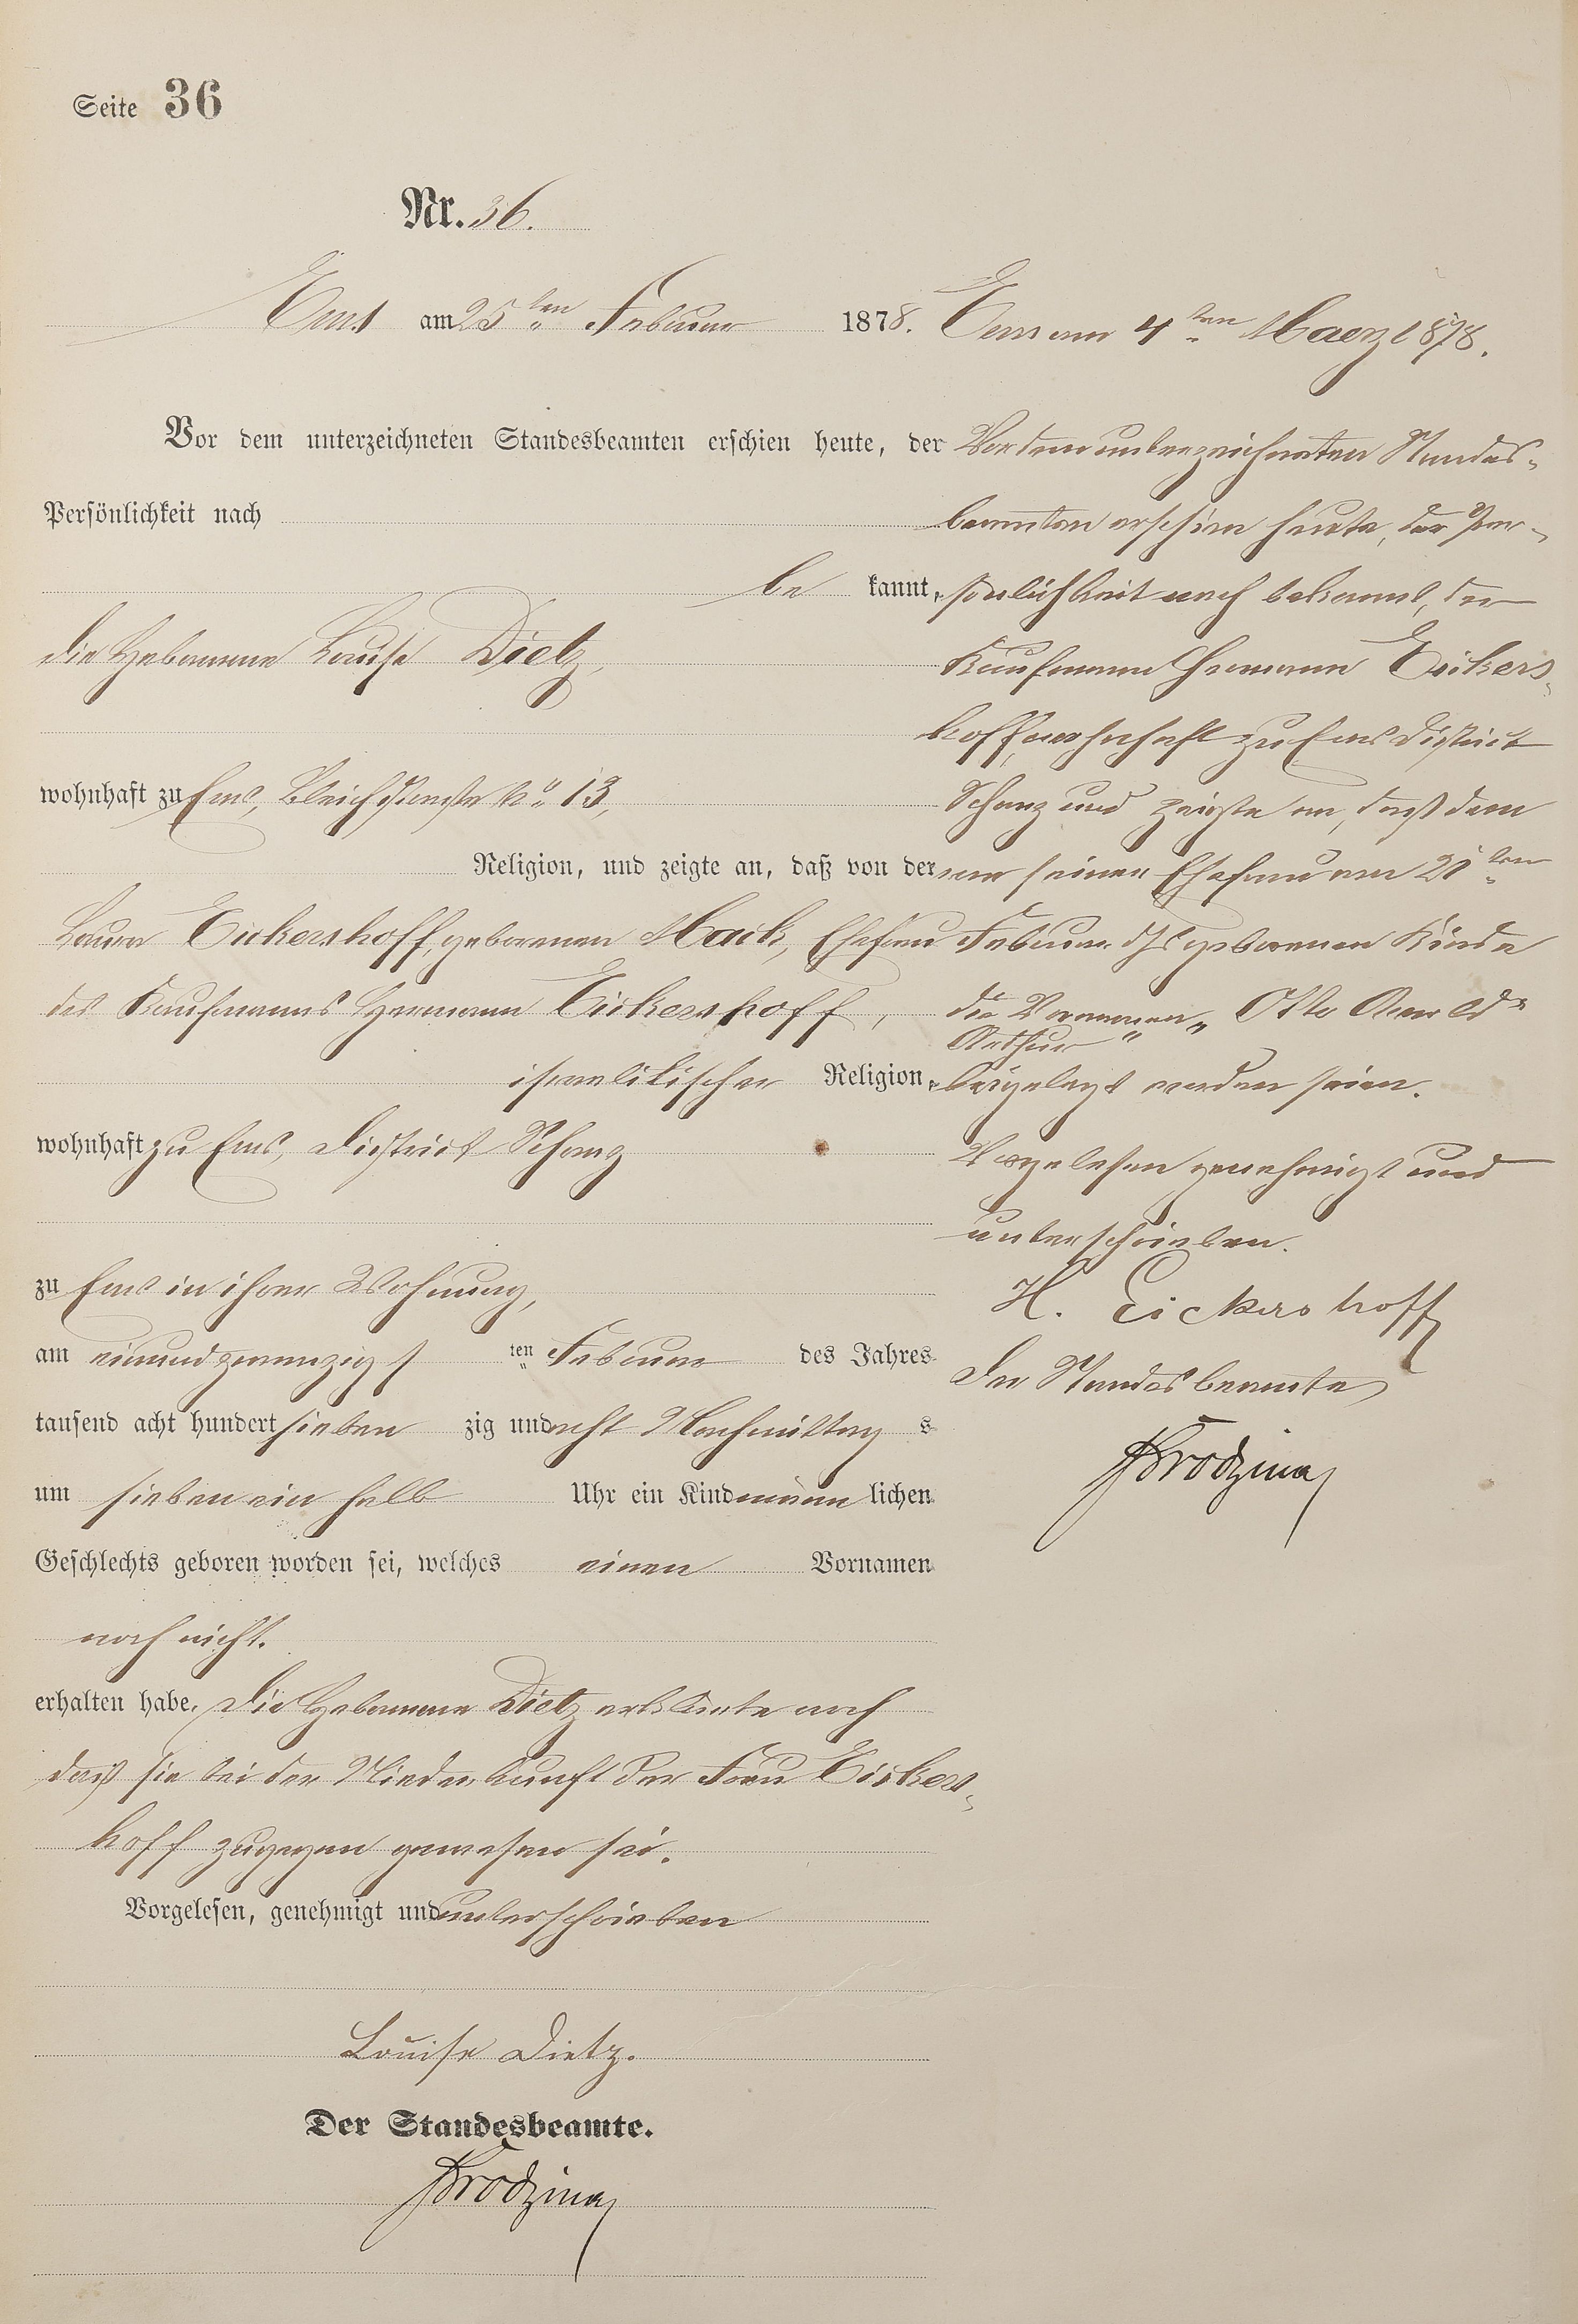 Seite 36
Nr. 36.
Ems am 25ten Februar 1878.
Vor dem unterzeichneten Standesbeamten erschien heute, der
Persönlichkeit nach
be kannt,
die Hebamme Louise Dietz,
wohnhaft zu Ems, Bleichstraße No. 13,
Religion, und zeigte an, daß von der
Laura Eickershoff, geborenen Mack, Ehefrau
des Kaufmanns Hermann Eickershoff,
israelitischer Religion,
wohnhaft zu Ems, District Schanz
zu Ems in ihrer Wohnung,
am einundzwanzigs ten Februar des Jahres
tausend acht hundert sieben zig und acht Nachmittag s
um sieben ein halb Uhr ein Kind männ lichen
Geschlechts geboren worden sei, welches einen Vornamen
noch nicht.
erhalten habe. Die Hebamme Dietz erklärte noch
daß sie bei der Niederkunft der Frau Eickers-
hoff zugegen gewesen sei.
Vorgelesen, genehmigt und unterschrieben
Louise Dietz.
Der Standesbeamte.
Brodzina
Ems am 4ten Maerz 1878.
Vor dem unterzeichneten Standes-
beamten erschien heute, der Per-
sönlichkeit nach bekannt, der
Kaufmann Hermann Eickers-
hoff, wohnhaft zu Ems District
Schanz und zeigte an, daß dem
von seiner Ehefrau am 21ten
Februar d Js geborenen Kinde
die Vornamen „Otto
Arthur"
beigelegt worden seien.
Vorgelesen genehmigt und
unterschrieben.
H. Eickershoff
Der Standesbeamte
Brodzina